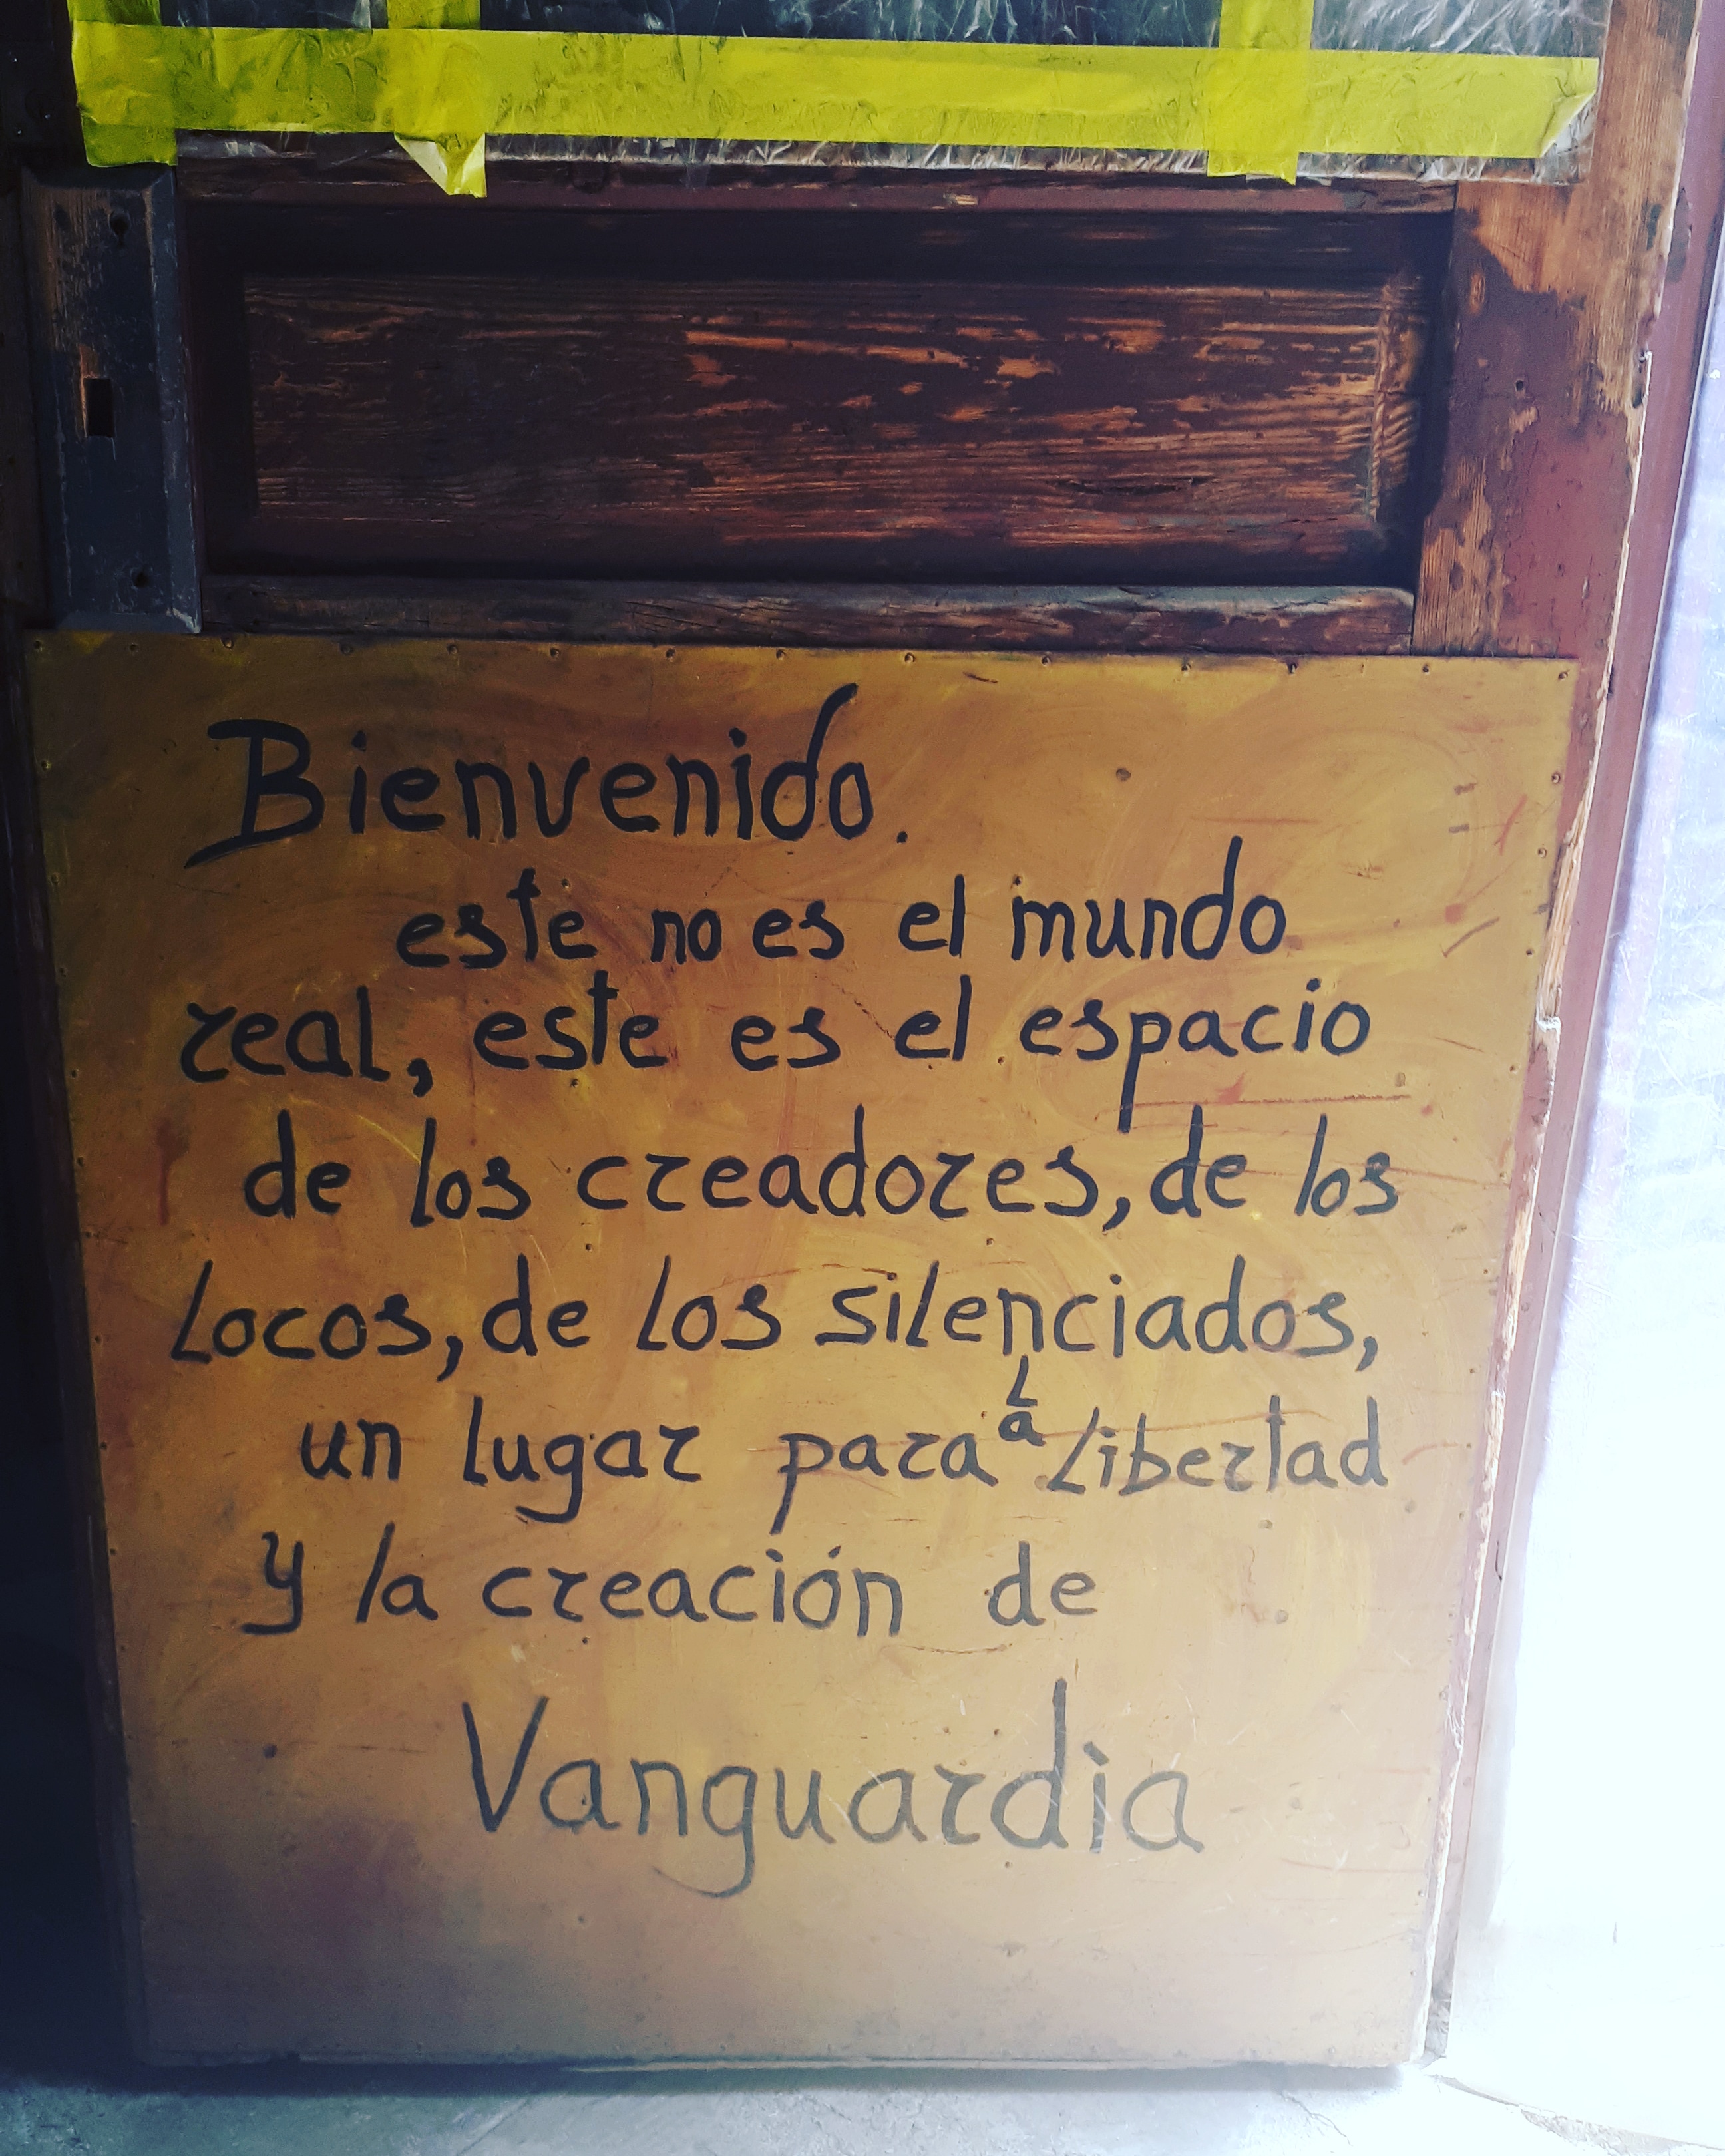 Bienvenido.
este no es el mundo
real, este es el espacio
de los creadores, de los
Locos, de los silenciados,
un lugar para La Libertad
y la creación de
Vanguardia